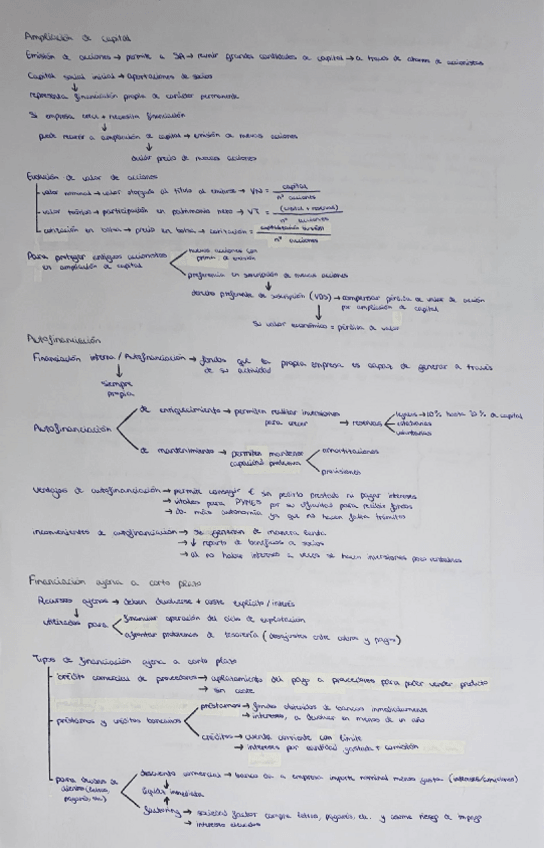 Ampliación de capital
Emisión de acciones → permite a SA → reunir grandes cantidades de capital → a través de ahorro de accionistas
Capital social inicial → aportaciones de socios
↓
representa financiación propia de carácter permanente
Si empresa crece + necesita financiación
↓
puede recurrir a ampliación de capital → emisión de nuevas acciones
↓
precio de nuevas acciones
Evolución de valor de acciones
valor nominal → valor otorgado al título al emitirse → VN = capital / nº acciones
valor teórico → participación en patrimonio neto → VT = (capital + reservas) / nº acciones
cotización en bolsa → precio en bolsa → cotización = capitalización / nº acciones
Para proteger antiguos accionistas
en ampliación de capital
nuevas acciones con
prima de emisión
preferencia en suscripción de nuevas acciones
↓
derecho preferente de suscripción (VDS) → compensar pérdida de valor de acción
por ampliación de capital
↓
Su valor económico = pérdida de valor
Autofinanciación
Financiación interna / Autofinanciación → fondos que la propia empresa es capaz de generar a través
de su actividad
↓
siempre
propia
Autofinanciación
de enriquecimiento → permiten realizar inversiones
para crecer → reservas
legales → 10% hasta 20% de capital
estatutarias
voluntarias
de mantenimiento → permiten mantener
capacidad productiva
amortizaciones
provisiones
Ventajas de autofinanciación → permite conseguir € sin pedirlo prestado ni pagar intereses
→ vitales para PYMES por su dificultad para recibir fondos
→ da más autonomía ya que no hacen falta trámites
inconvenientes de autofinanciación → se generan de manera lenta
→ ↓ reparto de beneficios a socios
→ al no haber intereses a veces se hacen inversiones poco rentables
Financiación ajena a corto plazo
Recursos ajenos → deben devolverse + coste explícito / interés
↓
utilizados para
financiar operación del ciclo de explotación
afrontar problemas de tesorería (desajustes entre cobros y pagos)
Tipos de financiación ajena a corto plazo
crédito comercial de proveedores → aplazamiento del pago a proveedores para poder vender producto
→ sin coste
préstamos y créditos bancarios
préstamos → fondos obtenidos de bancos inmediatamente
→ intereses, a devolver en menos de un año
créditos → cuenta corriente con límite
→ intereses por cantidad gastada + comisión
para deudas de
clientes (letras,
pagarés, etc.)
descuento comercial → banco da a empresa importe nominal menos gastos (intereses/comisiones)
↓
liquidez inmediata
↑
factoring → sociedad factor compra letras, pagarés, etc. y asume riesgo de impago
→ intereses elevados